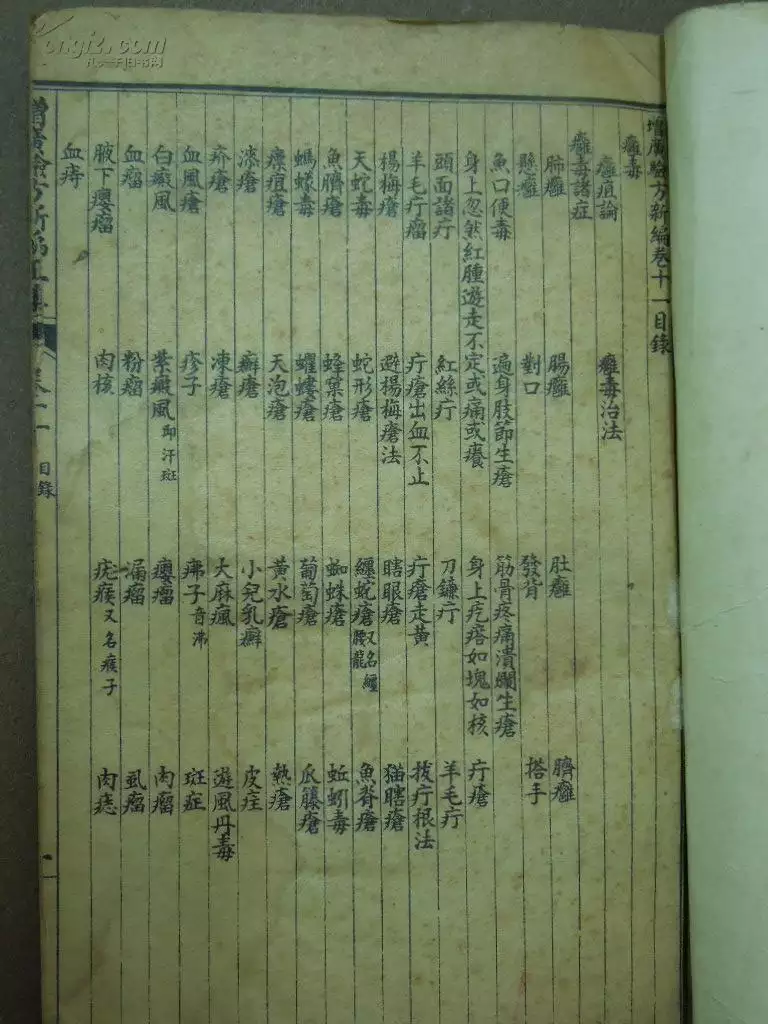 增廣驗方新編卷十一目錄
癰毒
癰疽論 癰毒治法
癰毒諸症
肺癰 腸癰 肚癰 臍癰
懸癰 對口 發背 搭手
魚口便毒 遍身肢節生瘡 筋骨疼痛潰爛生瘡
身上忽然紅腫遊走不定或痛或癢 身上疙瘩如塊如核 疔瘡
頭面諸疔 紅絲疔 刀鐮疔 羊毛疔
羊毛疔瘤 疔瘡出血不止 疔瘡走黃 拔疔根法
楊梅瘡 避楊梅瘡法 瞎眼瘡 貓瞎瘡
天蛇毒 蛇形瘡 纏蛇瘡又名纏腰龍 魚脊瘡
魚臍瘡 蜂窠瘡 蜘蛛瘡 蚯蚓毒
螞蟥毒 蠷螋瘡 葡萄瘡 瓜籐瘡
瘭疽瘡 天泡瘡 黃水瘡 熱瘡
漆瘡 癬瘡 小兒乳癬 皮症
疥瘡 凍瘡 大麻瘋 遊風丹毒
血風瘡 疹子 疿子音沸 斑症
白癜風 紫癜風即汗斑 癭瘤 肉瘤
血瘤 粉瘤 漏瘤 虱瘤
腋下癭瘤 肉核 疣瘊又名瘊子 肉痣
血痔
增廣驗方新編 卷十一 目錄 一
kongfz.com
孔夫子旧书网